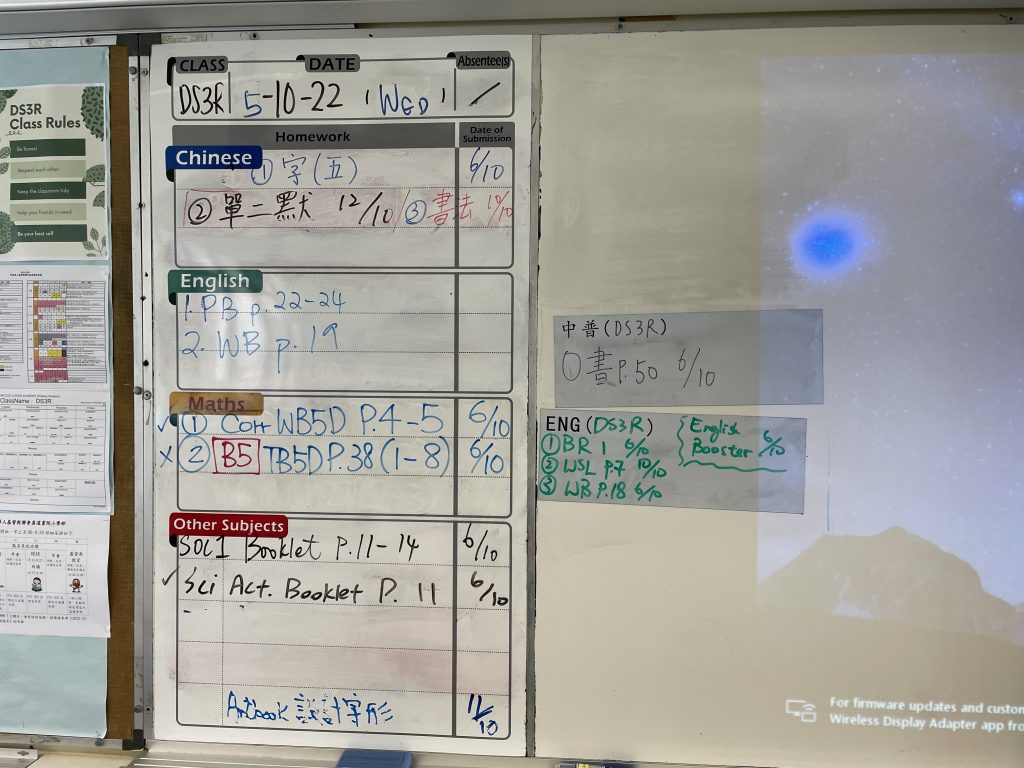 DS3R
Class Rules
Be honest
Respect each other
Keep the classroom tidy
Help your friends in need
Be your best self
ClassName: DS3R
CLASS DATE Absentee(s)
DS3R 5-10-22 (WED) /
Homework Date of Submission
Chinese
① 字(五) 6/10
② 單二默 12/10 ③ 書法 19/10
English
1. PB p. 22-24
2. WB p. 19
Maths
✓ ① Corr WB5D P.4-5 6/10
x ② B5 TB5D P.38 (1-8) 6/10
Other Subjects
SOC1 Booklet P.11-14 6/10
✓ Sci Act. Booklet P. 11 6/10
Artbook 設計字形 11/10
中普(DS3R)
① 書 P.50 6/10
ENG (DS3R)
① BR 1 6/10
② WSL P.7 10/10
③ WB P.18 6/10
English
Booster 6/10
For firmware updates and custom
Wireless Display Adapter app fro